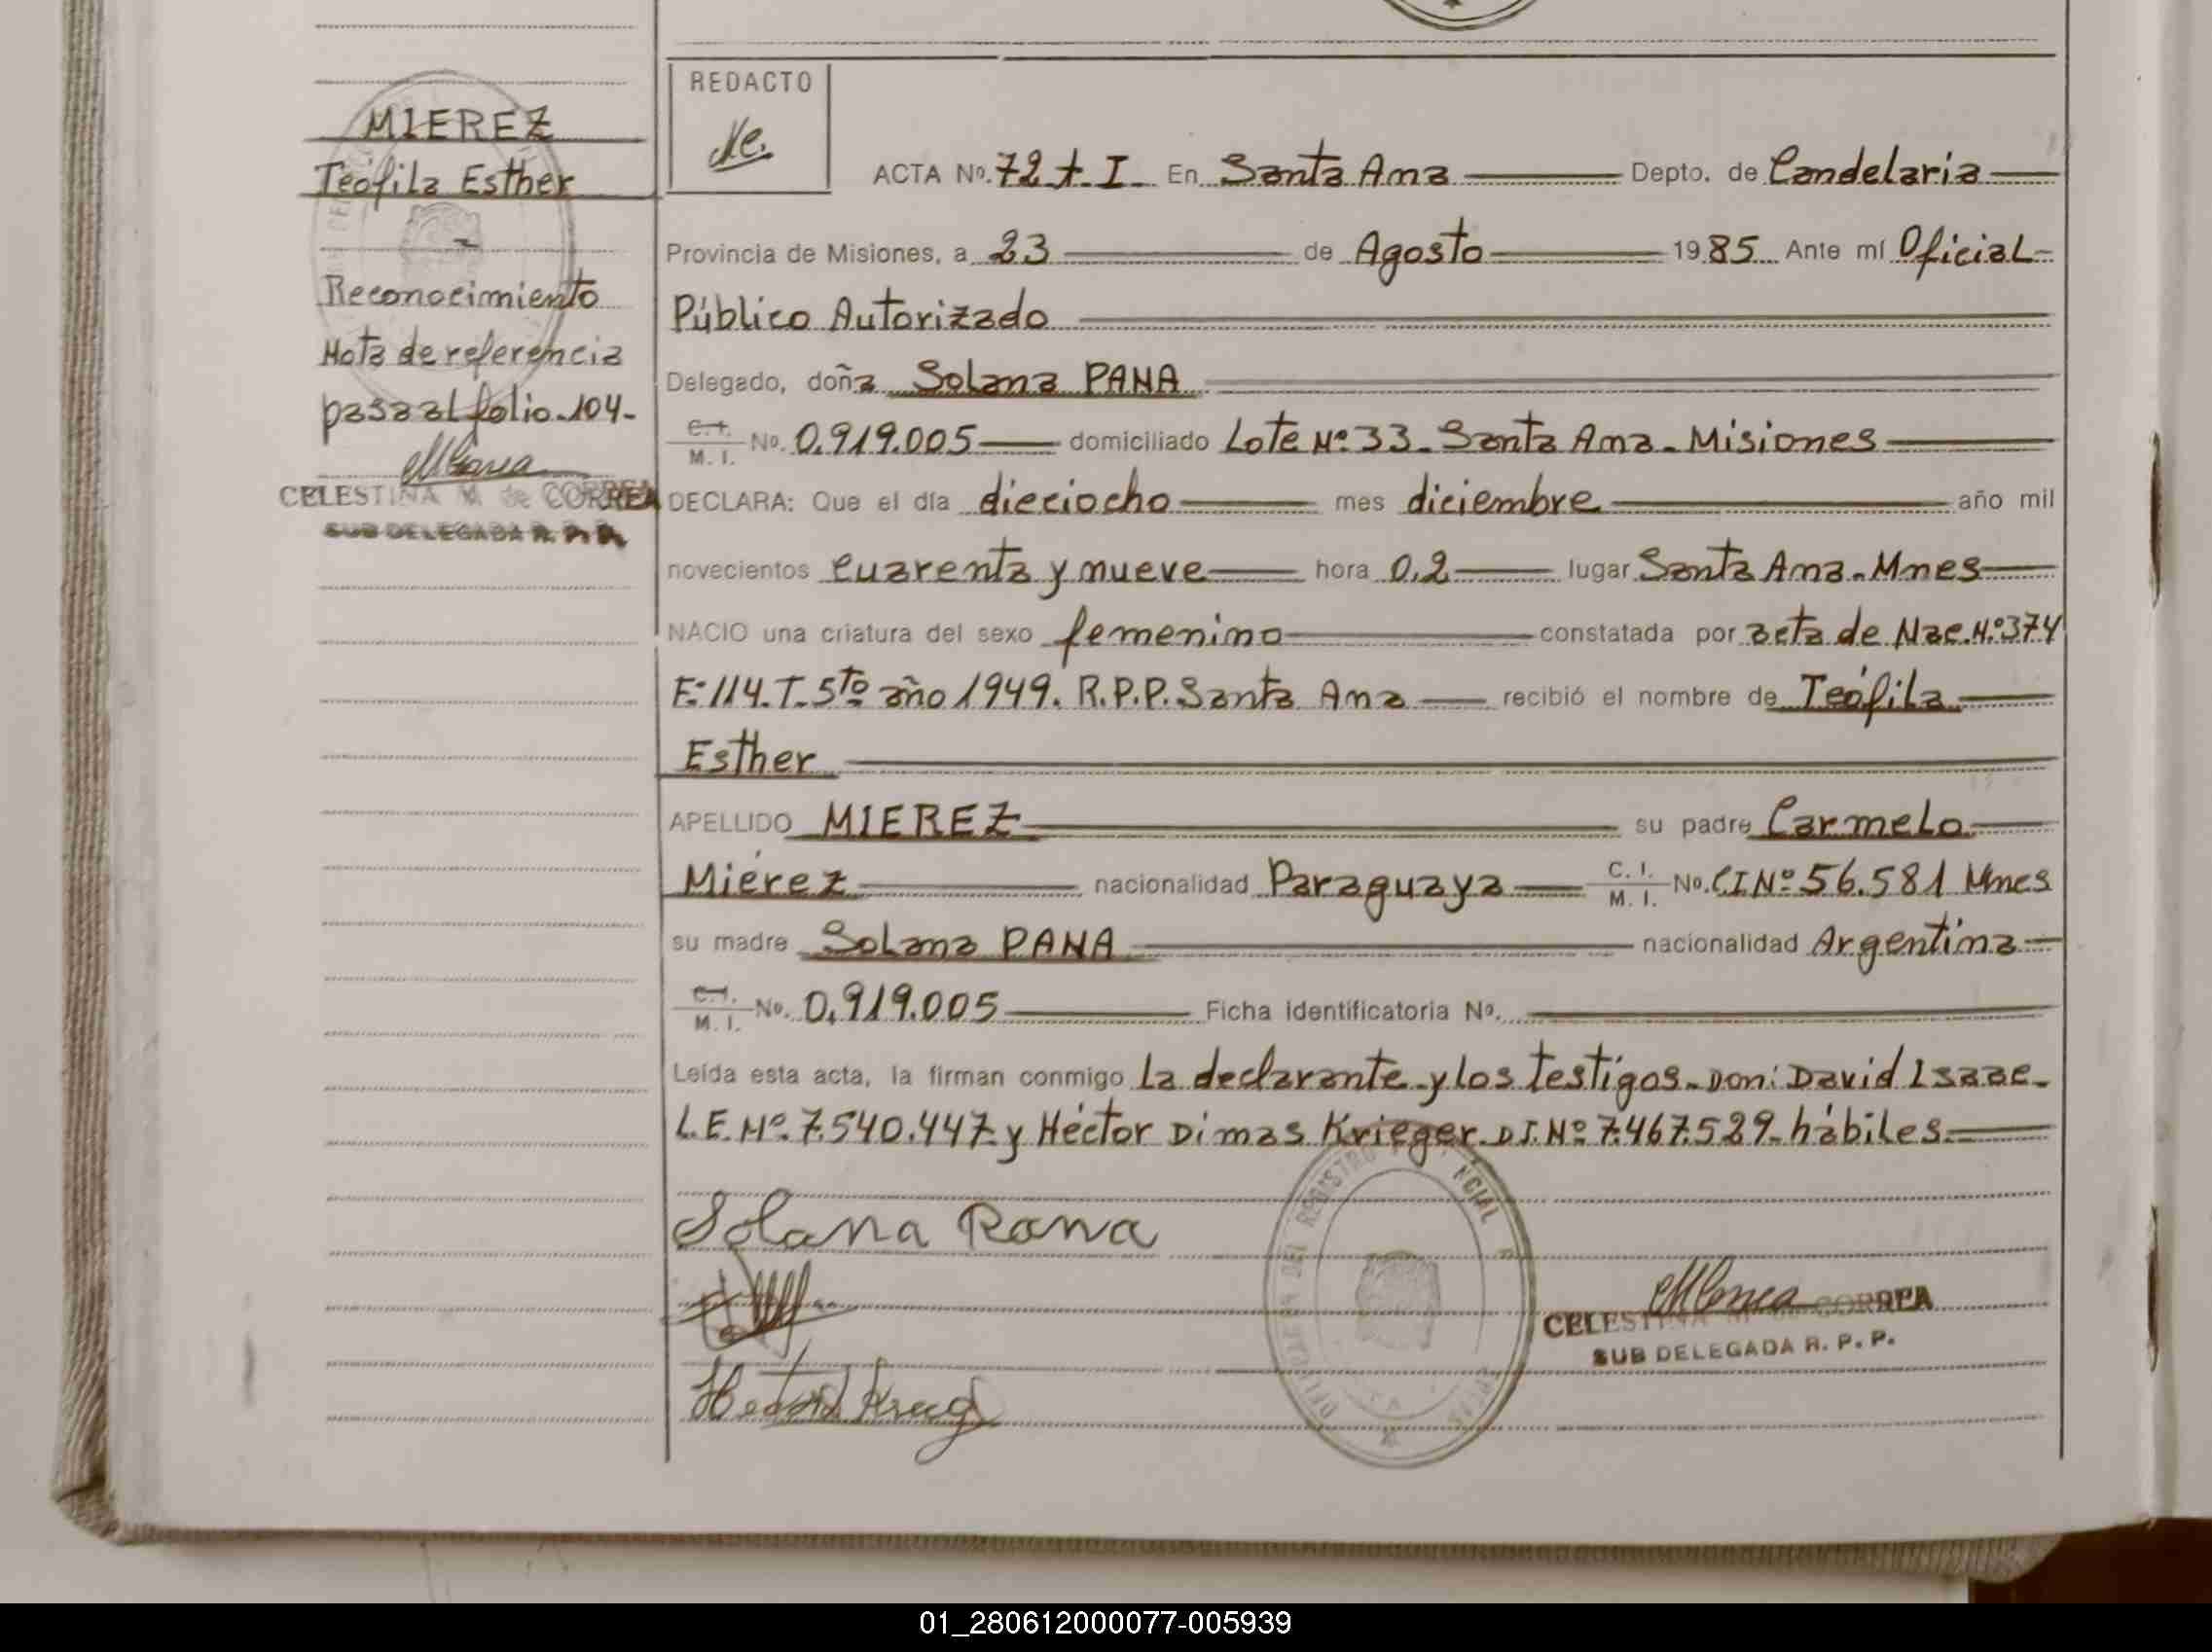 MIEREZ
Teófila Esther
Reconocimiento
Nota de referencia
pasa al folio-104-
CELESTINA M. de CORREA
SUB DELEGADA R. P. P.
REDACTO
ACTA Nº. 72 t. I En Santa Ana Depto. de Candelaria
Provincia de Misiones, a 23 de Agosto 1985 Ante mí Oficial
Público Autorizado
Delegado, doña Solana PANA
C. I. / M. I. Nº. 0.919.005 domiciliado Lote Nº 33 - Santa Ana - Misiones
DECLARA: Que el día dieciocho mes diciembre año mil
novecientos cuarenta y nueve hora 0,2 lugar Santa Ana - Mnes
NACIO una criatura del sexo femenino constatada por acta de Nac. Nº 374
F: 114. T. 5to año 1949. R.P.P. Santa Ana recibió el nombre de Teófila
Esther
APELLIDO MIEREZ su padre Carmelo
Miérez nacionalidad Paraguaya C. I. / M. I. Nº. CI Nº 56.581 Mnes
su madre Solana PANA nacionalidad Argentina
C. I. / M. I. Nº. 0.919.005 Ficha Identificatoria Nº.
Leída esta acta, la firman conmigo la declarante y los testigos - Don: David Isaac -
L.E. Nº. 7.540.447 y Héctor Dimas Krieger DI. Nº 7.467.529 - hábiles
Solana Pana
CELESTINA M de CORREA
SUB DELEGADA R. P. P.
01_280612000077-005939